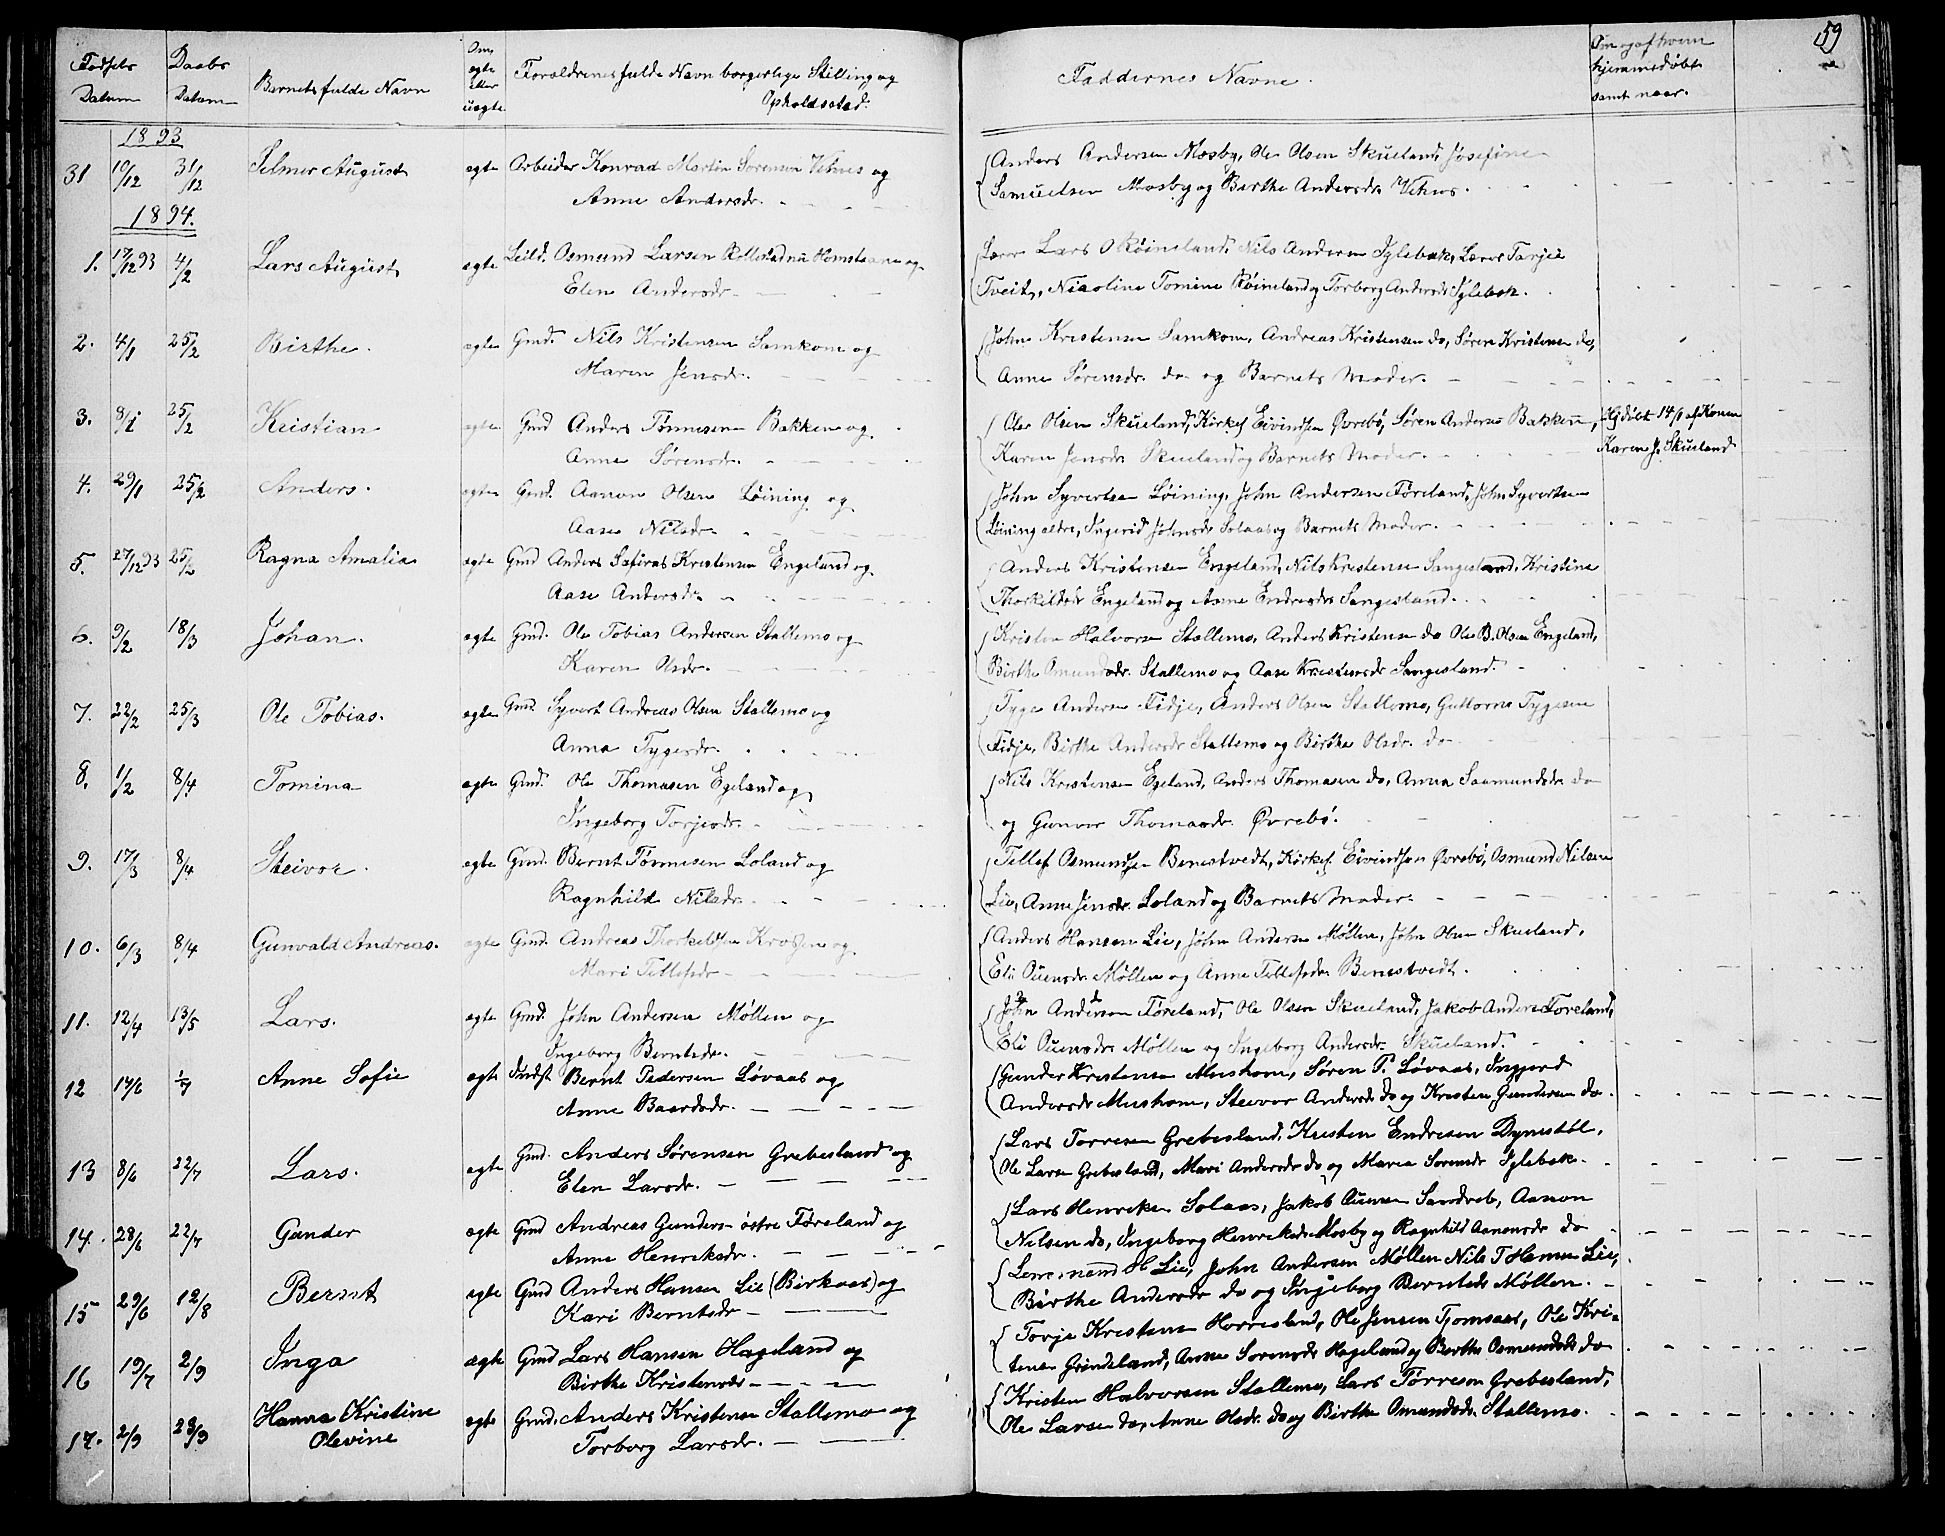 59
Fødsels Datum
Daabs Datum
Barnets fulde Navn
Om ægte eller uægte
Forældrenes fulde Navn borgerlige Stilling og Opholdssted.
Faddernes Navne.
Om og af hvem hjemmedøbt samt naar.
1893
31 10/12 31/12 Selmer August ægte Arbeider Konrad Martin Sørensen Vehus og
Anne Andersdr.
{Anders Andersen Mosby, Ole Olsen Skueland, Josefine
Samuelsen Mosby og Berthe Andersdr Vehus.
1894.
1. 17/12 93 4/2 Lars August ægte Leild. Osmund Larsen Rollstad nu Homstean og
Elen Andersdr.
{Lærer Lars O Røineland, Nils Andersen Iglebæk, Lærer Tarjei
Tveit, Nicoline Tomine Røineland og Torborg Andersdr Iglebæk.
2. 4/1 25/2 Birthe. ægte Gmd. Nils Kristensen Samkom og
Maren Jensdr.
{John Kristensen Samkom, Andreas Kristensen do, Søren Kristensen do,
Anne Sørensdr. do og Barnets Moder.
3. 8/1 25/2 Kristian ægte Gmd Anders Tønnesen Bakken og
Anne Sørensdr.
{Ole Olsen Skueland, Kirkes Eivindsen Øvrebø, Søren Andersen Bakken,
Karen Jensdr Skueland og Barnets Moder.
Hj. døbt 14/1 af Konen
Karen J. Skueland
4. 29/1 25/2 Anders. ægte Gmd. Aanon Olsen Løining og
Aase Nilsdr.
{John Syvertsen Løining, John Andersen Føreland, John Syvertsen
Løining ældre, Ingerid Johnsdr Solaas og Barnets Moder.
5. 27/12 93 25/2 Ragna Amalia ægte Gmd Anders Sefiras Kristensen Engeland og
Aase Andersdr.
{Anders Kristensen Engeland, Nils Kristensen Sangesland, Kristine
Thorkildsdr Engeland og Anne Endresdr Sangesland.
6. 9/2 18/3 Johan. ægte Gmd. Ole Tobias Andersen Stallemo og
Karen Olsdr.
{Kristen Halvorsen Stallemo, Anders Kristensen do Ole B. Olsen Engeland,
Birthe Omundsdr. Stallemo og Aase Kristensdr Sangesland.
7. 22/2 25/3 Ole Tobias. ægte Gmd. Syvert Andreas Olsen Stallemo og
Anna Tygesdr.
{Tyge Andersen Fidje, Anders Olsen Stallemo, Guttorm Tygesen
Fidje, Birthe Andersdr Stallemo og Birthe Olsdr. do
8. 1/2 8/4 Tomina ægte Gmd. Ole Thomasen Egeland og
Ingeborg Torjesdr.
{Nils Kristensen Egeland, Anders Thomasen do, Anna Saamundsdr do
og Gunvor Thomasdr. Øvrebø.
9. 17/3 8/4 Steivor. ægte Gmd. Bernt Tønnesen Loland og
Ragnhild Nilsdr.
{Tellef Osmundsen Benestvedt, Kirkes Eivindsen Øvrebø, Osmund Nilsen
Lie, Anne Jensdr. Loland og Barnets Moder.
10. 6/3 8/4 Gunvald Andreas. ægte Gmd. Andreas Thorkildsen Krossen og
Mari Tellefsdr
{Anders Hansen Lie, John Andersen Møllen, John Olsen Skueland,
Eli Ouensdr. Møllen og Anne Tellefsdr. Benestvedt.
11. 12/4 13/5 Lars. ægte Gmd. John Andersen Møllen og
Ingeborg Berntsdr.
{John Andersen Føreland, Ole Olsen Skueland, Jakob Andersen Føreland,
Eli Ouensdr Møllen og Ingeborg Andersdr Skueland.
12 14/6 1/7 Anne Sofie ægte Indst Bernt Pedersen Løvaas og
Anne Baardsdr.
{Gunder Kristensen Mushom, Søren P. Løvaas, Ingjerd
Andersdr Mushom, Steivor Andersdr do og Kristen Gundersen do.
13 8/6 22/7 Lars. ægte Gmd. Anders Sørensen Grebesland og
Elen Larsdr.
{Lars Torresen Grebesland, Kristen Endresen Dynestøl,
Ole Larsen Grebesland, Mari Andersdr do og Maren Sørensdr Iglebæk.
14. 28/6 22/7 Gunder ægte Gmd Andreas Gunders. østre Føreland og
Anne Henriksdr.
{Lars Henriksen Solaas, Jakob Ouensen Sandreb, Aanon
Nilsen do, Ingeborg Henriksdr Mosby og Ragnhild Aanonsdr do
15 29/6 12/8 Bernt ægte Gmd Anders Hansen Lie (Birkaas) og
Kari Berntsdr
{Lensmand H Lie, John Andersen Møllen Nils T Homme Lie,
Birthe Andersdr do og Ingeborg Berntsdr Møllen.
16 19/7 2/9 Inga ægte Gmd Lars Hansen Hageland og
Birthe Kristensdr
{Torje Kristensen Horrisland, Ole Jensen Tjomsaas, Ole Kri-
stensen Grindeland, Anne Sørensdr Hageland og Berthe Osmundsdr do
17. 2/9 23/9 Hanna Kristine
Olevine
ægte Gmd. Anders Kristensen Stallemo og
Torborg Larsdr.
{Kristen Halvorsen Stallemo, Lars Tørresen Grebesland,
Ole Larsen do, Anne Olsdr. do og Birthe Omundsdr. Stallemo.